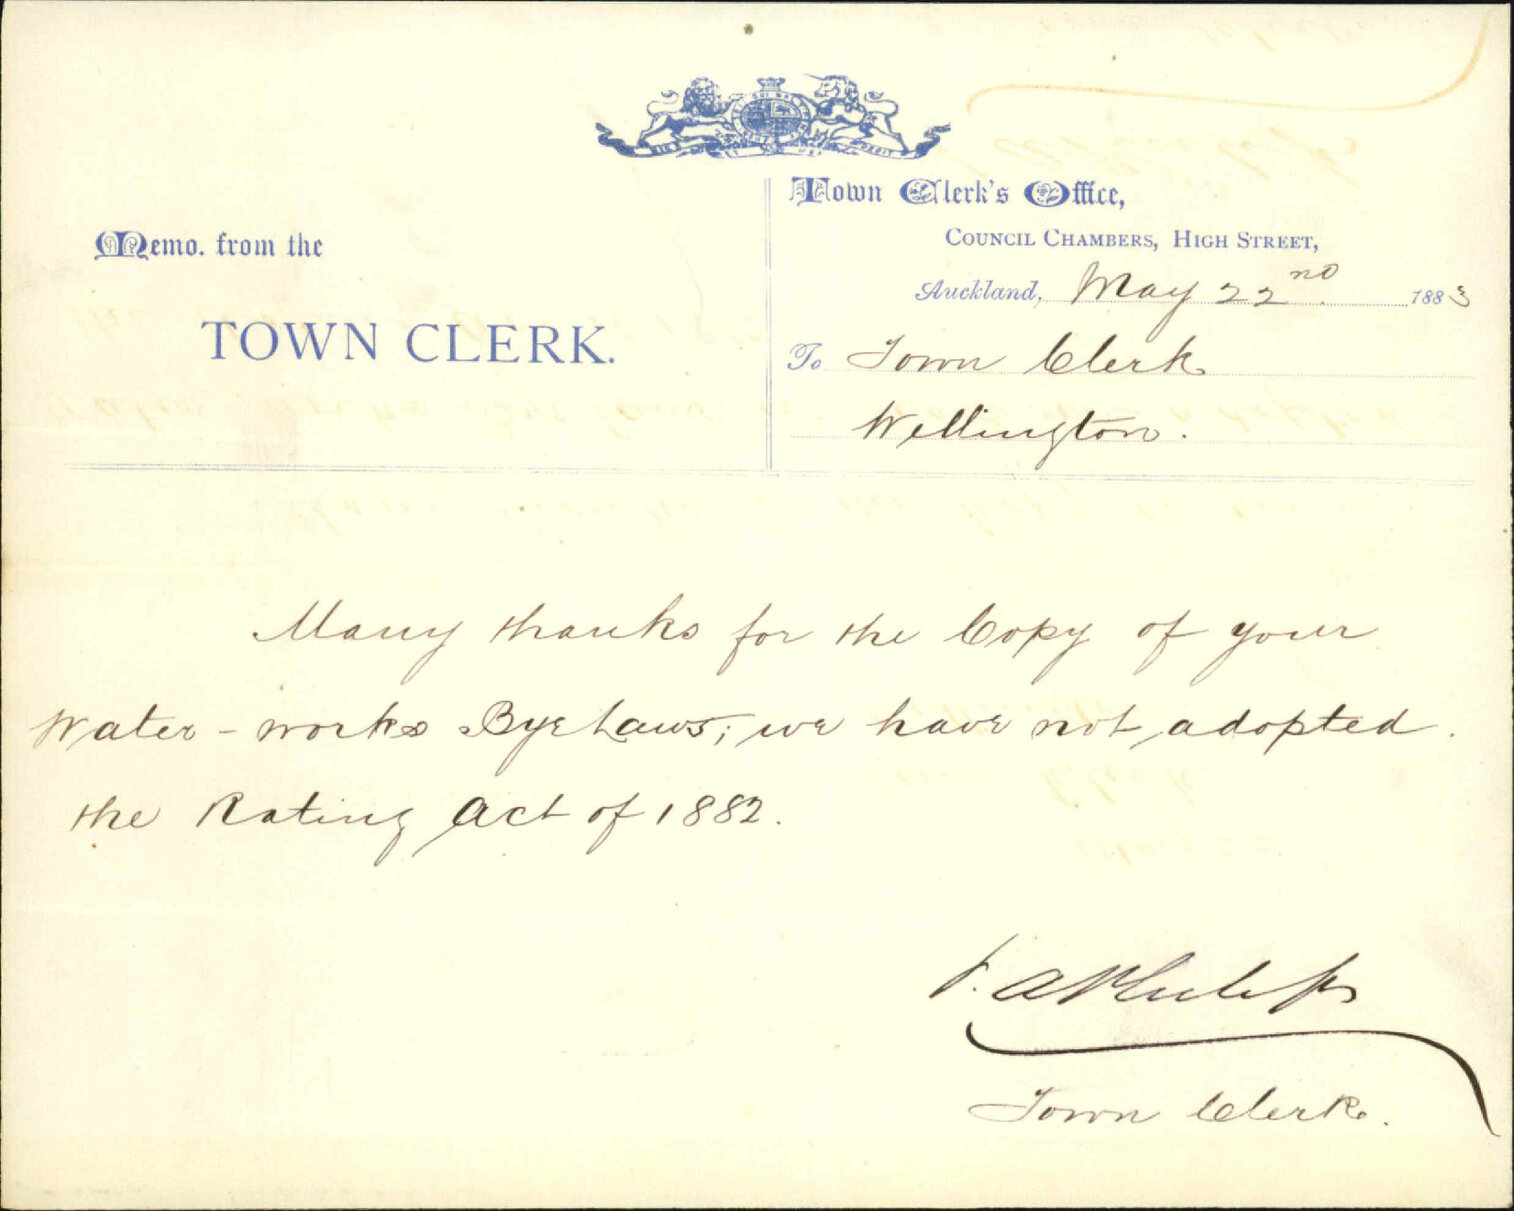 Town Clerk's Office,
Council Chambers, High Street,
Memo. from the
TOWN CLERK.
Auckland, May 22nd 1883
To Town Clerk
Wellington.
Many thanks for the Copy of your
Water-works Bye Laws; we have not adopted
the Rating Act of 1882.
P. A Philips
Town Clerk.